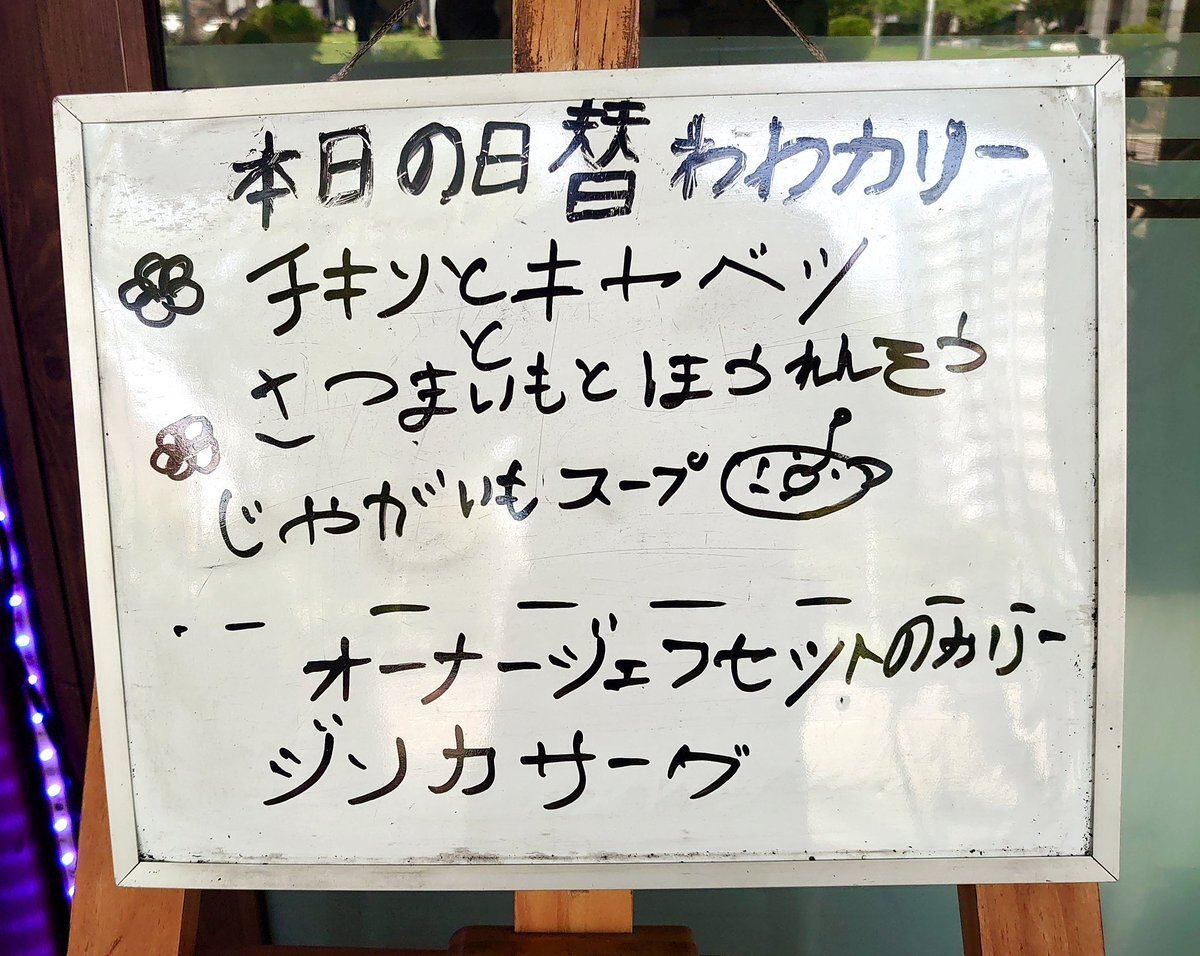 本日の日替わりカリー
チキンとキャベツ
と
さつまいもとほうれんそう
じゃがいもスープ
オーナーシェフセットのカリー
ジンカサーグ